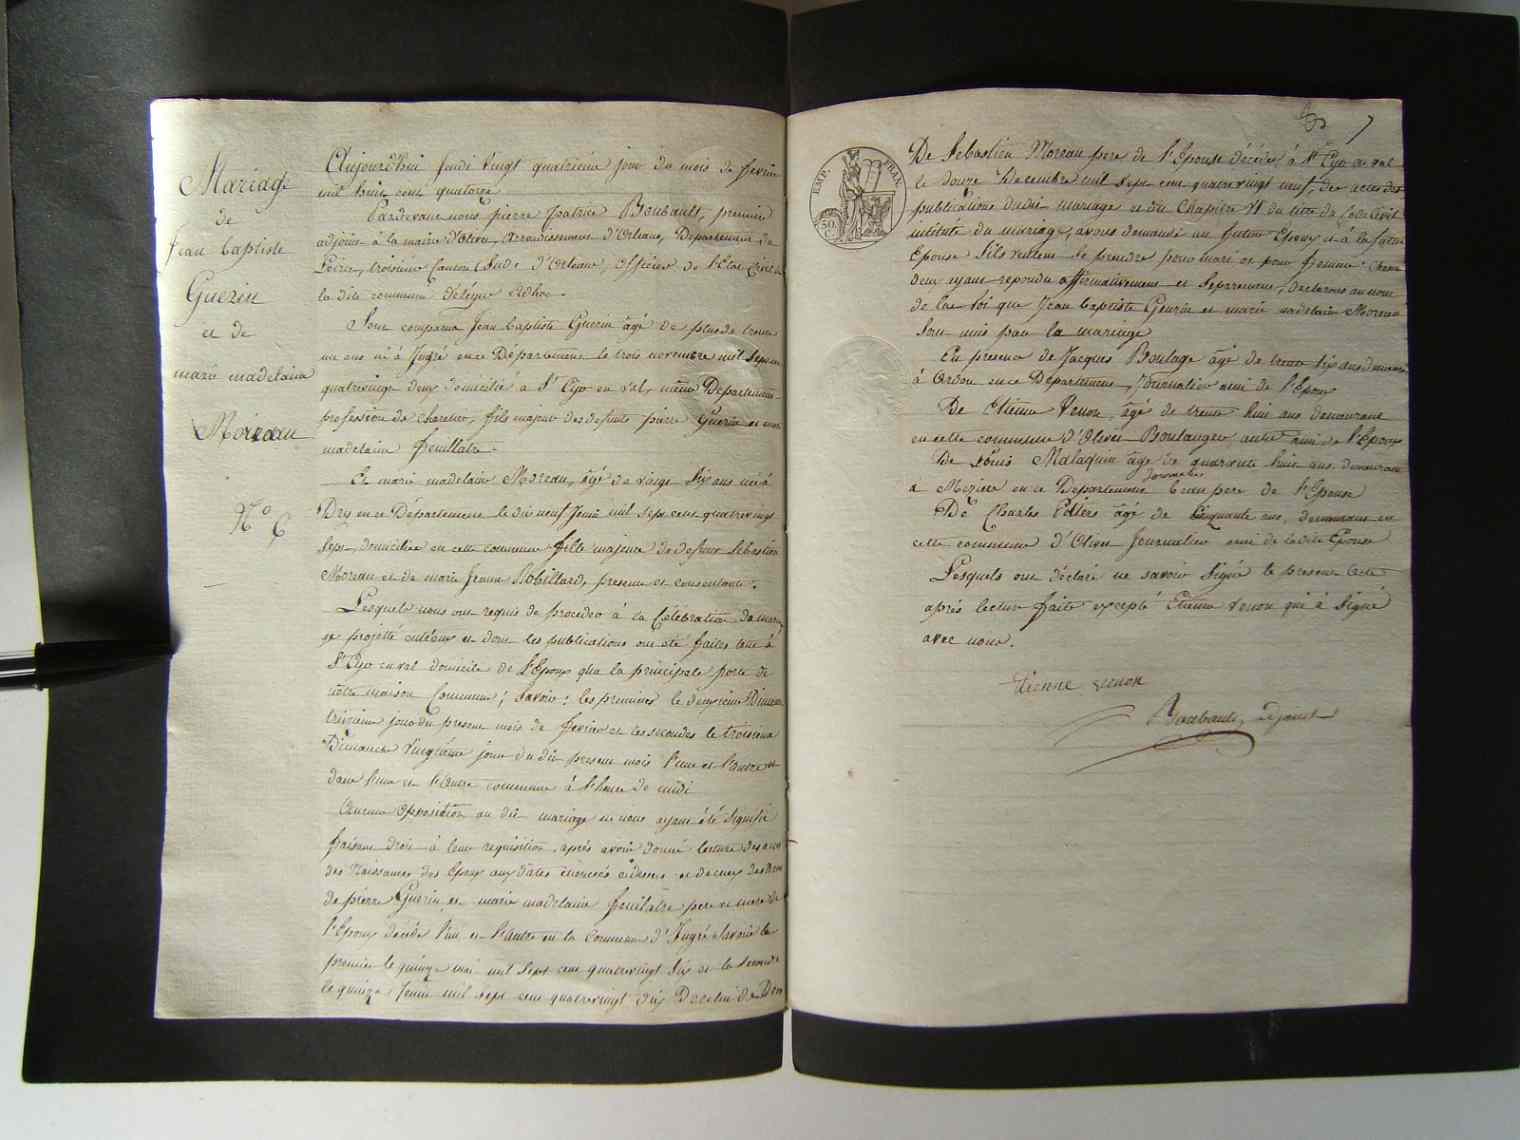 Mariage
de
Jean Baptiste
Guerin
et de
marie madelaine
Moreau
N.o 6
Aujourdhui jeudi vingt quatrieme jour du mois de fevrier
mil huit cent quatorze
Pardevant nous pierre patrice Boubault, premier
adjoint à la mairie d'Olivet, arrondissement d'Orleans, Département du
Loiret, troisieme Canton Sud d'Orleans, officier de l'Etat Civil de
la dite commune délégué Adhoc.
Sont comparus Jean baptiste Guerin âgé de plus de trente
un ans né à Ingré en ce Département le trois novembre mil sept cen
quatrevingt deux domicilié à St Cyr en val, même Département
profession de charetier, fils majeur des defunts pierre Guerin et marie
madelaine feuillatre.
Et marie madelaine Moreau, âgé de vingt six ans née à
Dry en ce Département le dix neuf Juin mil sept cent quatrevingt
sept, domiciliée en cette commune fille majeure de defunt Sebastien
Moreau et de marie Jeanne Robillard, presente et consentante.
Lesquels nous ont requis de proceder à la Célébration du maria
ge projetté entreux et dont les publications ont été faites tant à
St Cyr en val domicile de l'Epoux qu'a la principale porte de
nôtre maison Commune; Savoir: les premieres le deuxieme Dimanche
treizieme jour du present mois de fevrier et les secondes le troisieme
Dimanche vingtieme jour du dit present mois l'une et l'autre
dans l'une et l'autre commune à l'heure de midi
Aucune opposition au dit mariage ne nous ayant été signifié
faisant droit à leur requisition, après avoir donné lecture des actes
des Naissances des Epoux aux dates énoncées cidessus et de ceux des décès
de pierre Guerin et marie madelaine feuillatre pere et mere de
l'Epoux décédé l'un et l'autre en la Commune d'Ingré Savoir le
premier le quinze mai mil sept cent quatrevingt six et la seconde
le quinze Juin mil sept cent quatrevingt dix De celui de Décès
7
EMP. FRAN.
50.
C.
De Sebastien Moreau pere de l'Epouse décédé à St Cyr en val
le douze Decembre mil sept cent quatrevingt neuf, des actes des
publications dudit mariage et du Chapitre VI du titre du Code Civil
intitulé du mariage, avons demandé au futur Epoux et à la future
Epouse s'ils veulent se prendre pour mari et pour femme: chacun
deux ayant repondu affirmativement et séparément, declarons au nom
de la Loi que Jean baptiste Guerin et marie madelaine Moreau
sont unis par la mariage
En presence de Jacques Boulage âgé de trente six ans demeurant
à Ardon en ce Département, Journalier ami de l'Epoux
De Etienne Venon, âgé de trente huit ans demeurant
en cette commune d'Olivet Boulanger autre ami de l'Epoux
De Louis Malaquin âgé de quarante huit ans, demeurant
a Meziere en ce Département Journalier beau pere de l'Epouse
De Charles Pellers âgé de Cinquante ans, demeurant en
cette commune d'Olivet Journalier ami de la dite Epouse
Lesquels ont déclaré ne savoir signer le present acte
après lecture faite excepté Etienne Venon qui à signé
avec nous.
Etienne venon
Boubault, adjoint